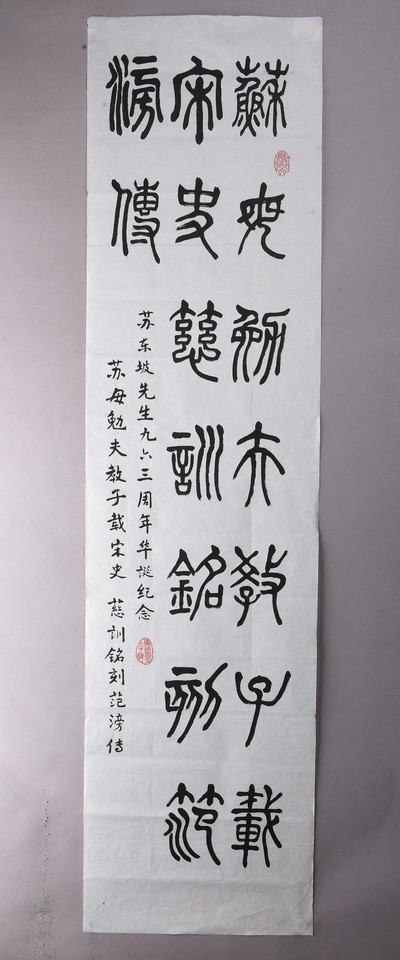 蘇母勉夫教子載
宋史慈訓銘刻范
滂傳
苏东坡先生九六三周年华诞纪念
苏母勉夫教子载宋史 慈训铭刻范滂传